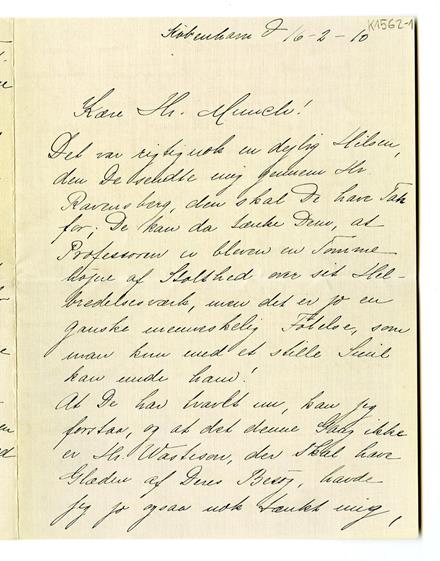 K1562-1
København d 16-2-10
Kære Hr. Munch!
Det var rigtignok en dejlig Hilsen,
den De sendte mig gennem Hr
Ravensberg, den skal De have Tak
for. De kan da tænke Dem, at
Professoren er bleven en Tomme
højere af Stolthed over sit Hel-
bredelsesværk, men det er jo en
ganske menneskelig Følelse, som
man kun med et stille Smil
kan unde ham!
At De har travlt nu, kan jeg
forstaa, og at det denne Gang ikke
er Hr. Wartison, der skal have
Glæden af Deres Besøg, havde
jeg jo ogsaa nok tænkt mig,